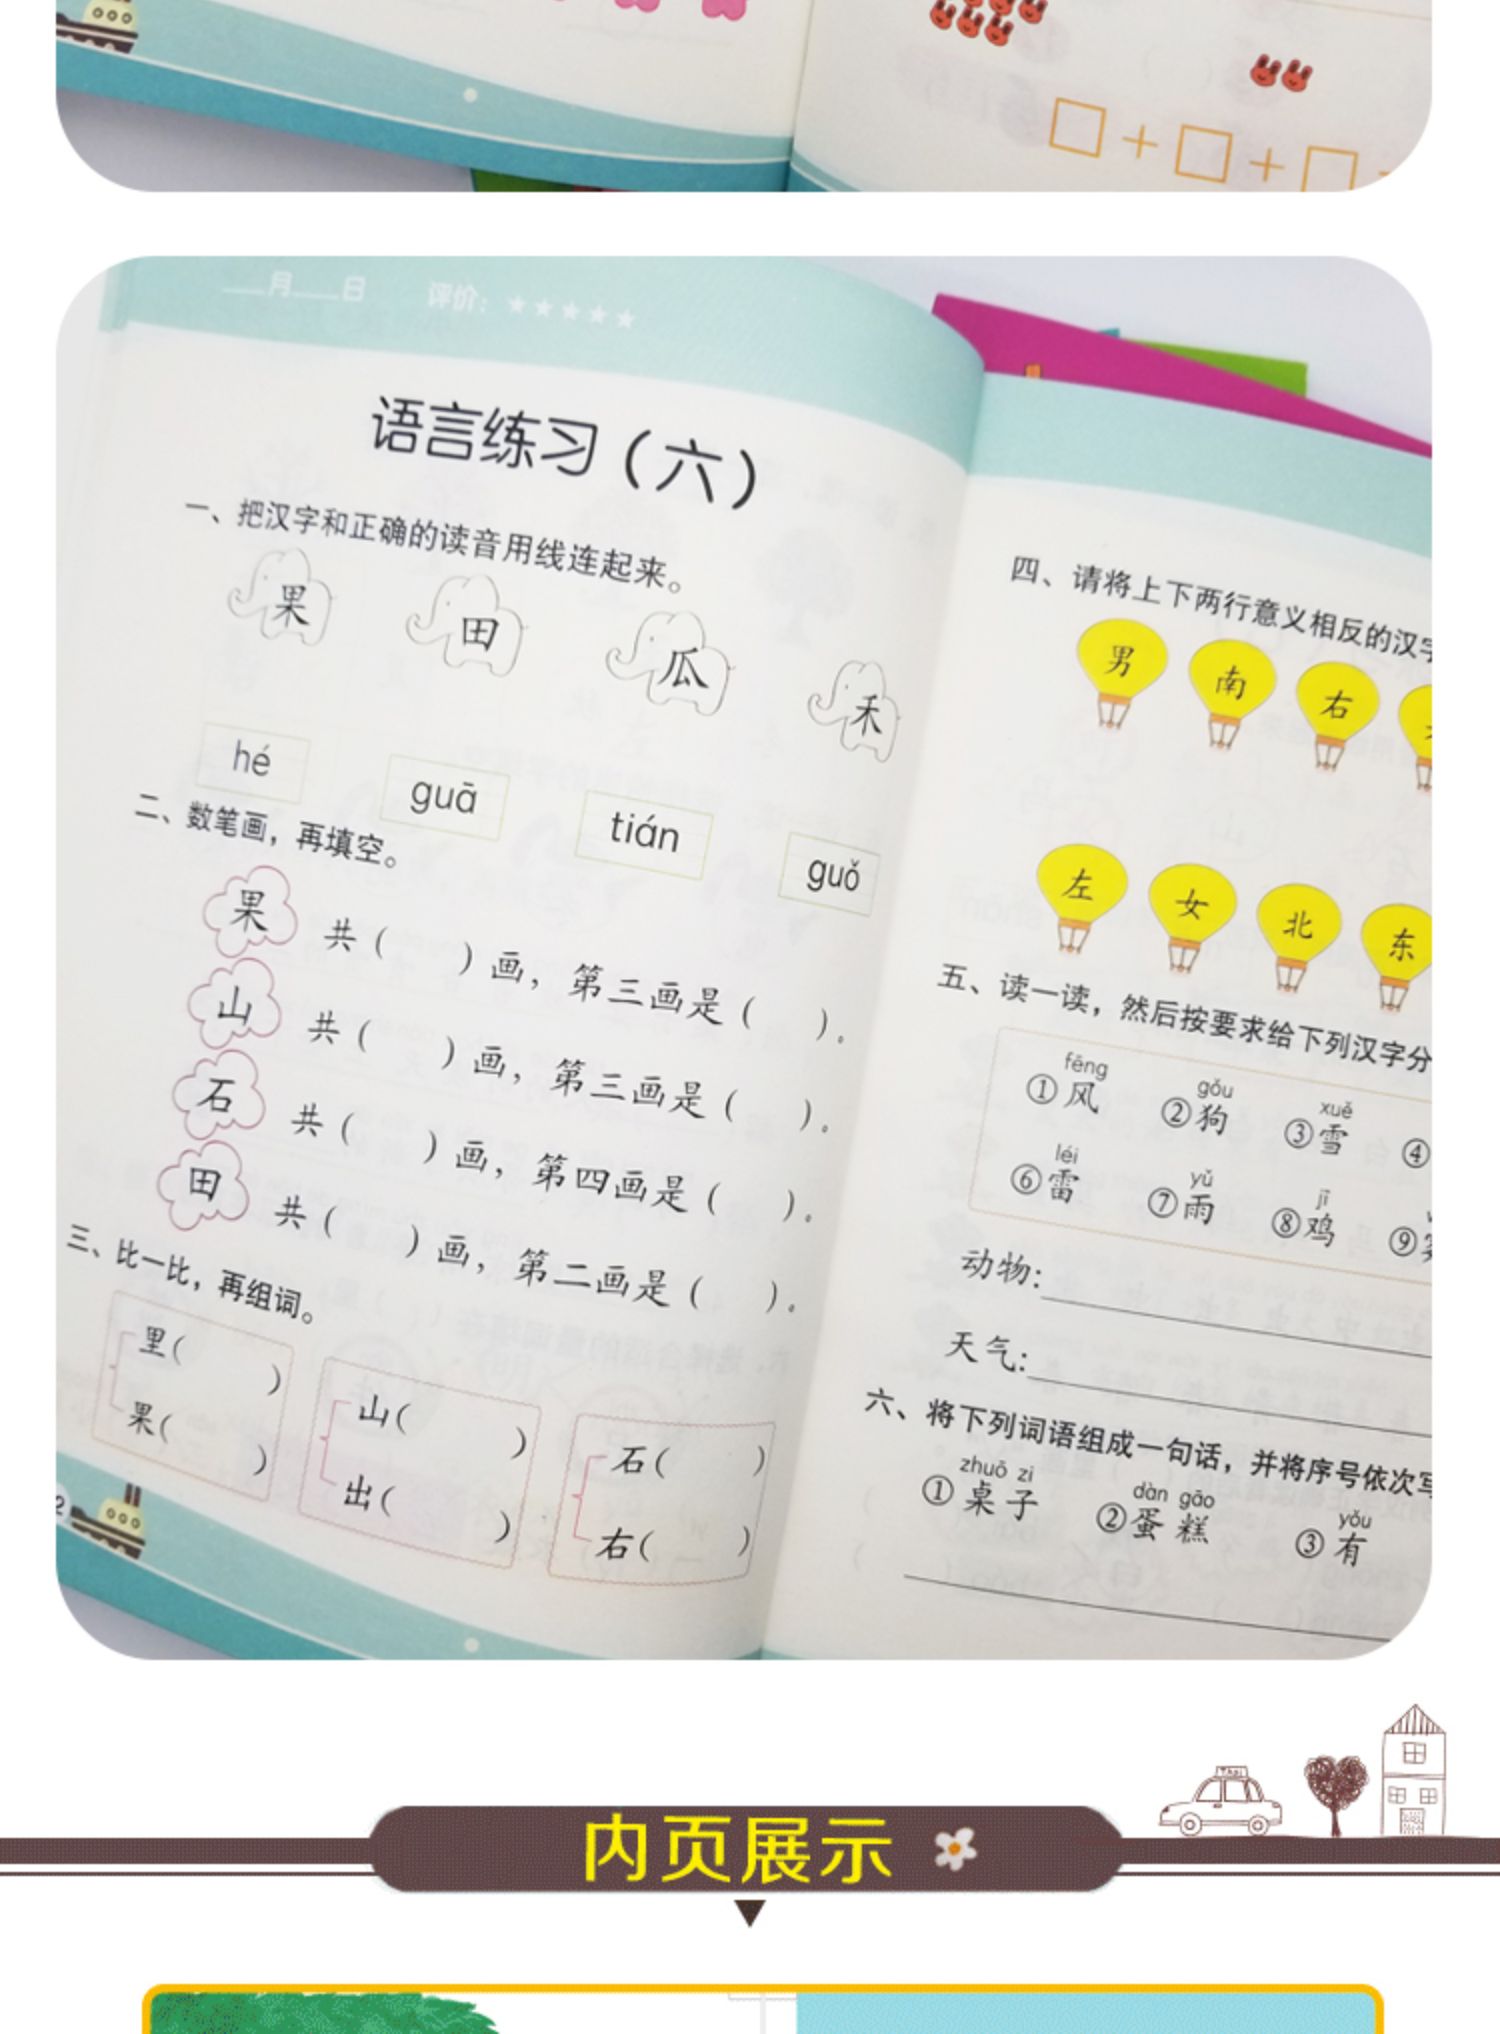 月 日 评价：★★★★★
语言练习（六）
一、把汉字和正确的读音用线连起来。
果 田 瓜 禾
hé guā tián guǒ
二、数笔画，再填空。
果 共（ ）画，第三画是（ ）。
山 共（ ）画，第三画是（ ）。
石 共（ ）画，第四画是（ ）。
田 共（ ）画，第二画是（ ）。
三、比一比，再组词。
里（ ） 山（ ） 石（ ）
果（ ） 出（ ） 右（ ）
2
四、请将上下两行意义相反的汉字
男 南 右
左 女 北 东
五、读一读，然后按要求给下列汉字分
fēng gǒu xuě
①风 ②狗 ③雪 ④
léi yǔ jī
⑥雷 ⑦雨 ⑧鸡 ⑨
动物:
天气:
六、将下列词语组成一句话，并将序号依次写
zhuō zi dàn gāo yǒu
①桌子 ②蛋糕 ③有
内页展示